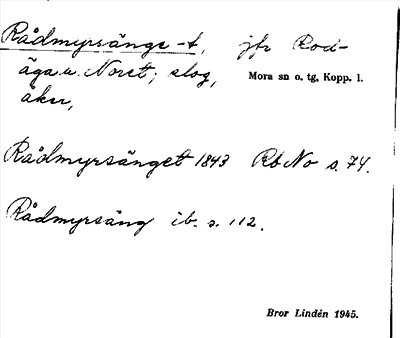 Rådmyrsänge -t, jfr Rod-
äga u. Noret; slog, Mora sn o. tg, Kopp. l.
åker,
Rådmyrsänget 1843 Rb No s. 74.
Rådmyrsäng ib. s. 112.
Bror Lindén 1945.